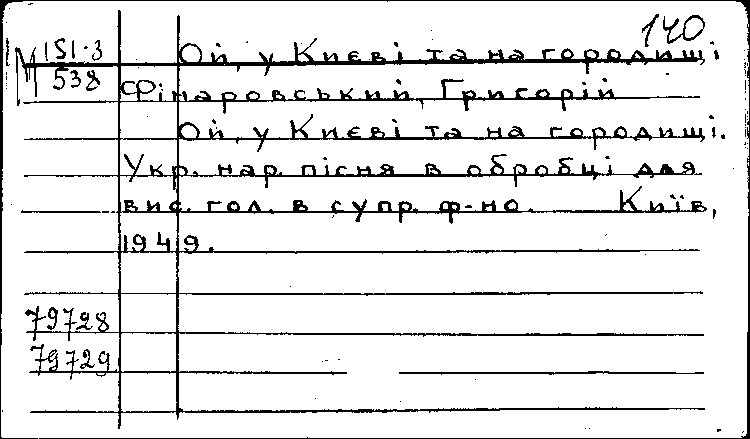 140
М 151-3
538
Ой, у Києві та на городищі
Фінаровський, Григорій
Ой, у Києві та на городищі.
Укр. нар. пісня в обробці для
вис. гол. в супр. ф-но. Київ,
1949.
79728
79729